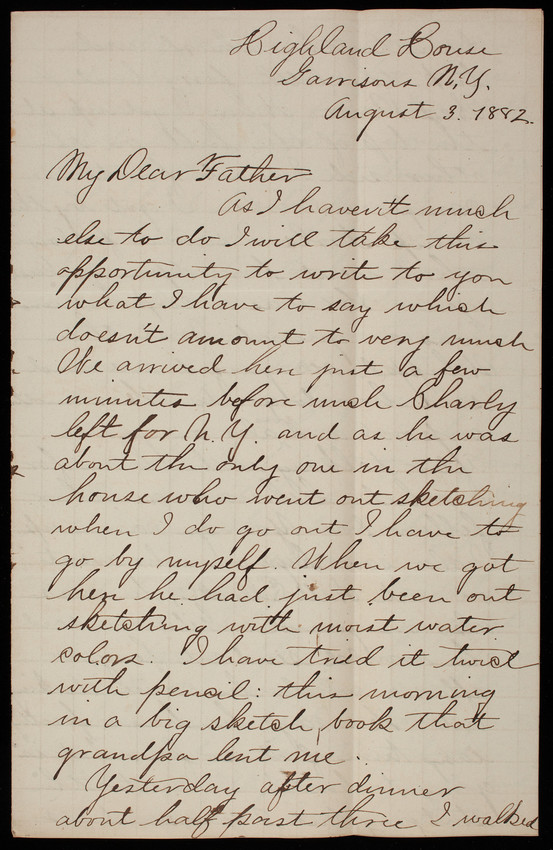 Highland House
Garrisons N.Y.
August 3. 1882.
My Dear Father
As I haven't much
else to do I will take this
opportunity to write to you
what I have to say which
doesn't amount to very much
We arrived here just a few
minutes before uncle Charly
left for N.Y. and as he was
about the only one in the
house who went out sketching
when I do go out I have to
go by myself. When we got
here he had just been out
sketching with moist water
colors. I have tried it twice
with pencil: this morning
in a big sketch book that
grandpa lent me.
Yesterday after dinner
about half past three I walked